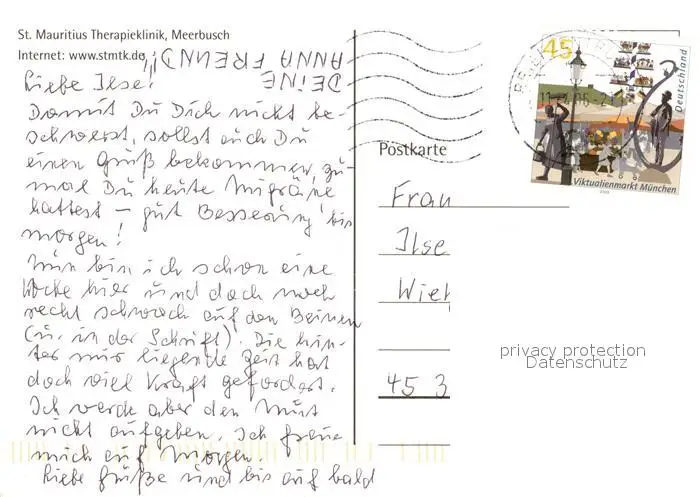 St. Mauritius Therapieklinik, Meerbusch
Internet: www.stmtk.de
Liebe Ilse!
Damit Du Dich nicht be-
schwerst, sollst auch Du
einen Gruß bekommen, zu-
mal Du heute Migräne
hattest – gut Besserung bis
morgen!
Nun bin ich schon eine
Woche hier und doch noch
recht schwach auf den Beinen
(u. in der Schrift). Die hin-
ter mir liegende Zeit hat
doch viel Kraft gefordert.
Ich werde aber den Mut
nicht aufgeben. Ich freue
mich auf morgen.
Liebe Grüße und bis auf bald
DEINE
ANNA FREUND
Postkarte
Frau
Ilse
45 3
45
Deutschland
Viktualienmarkt München
privacy protection
Datenschutz